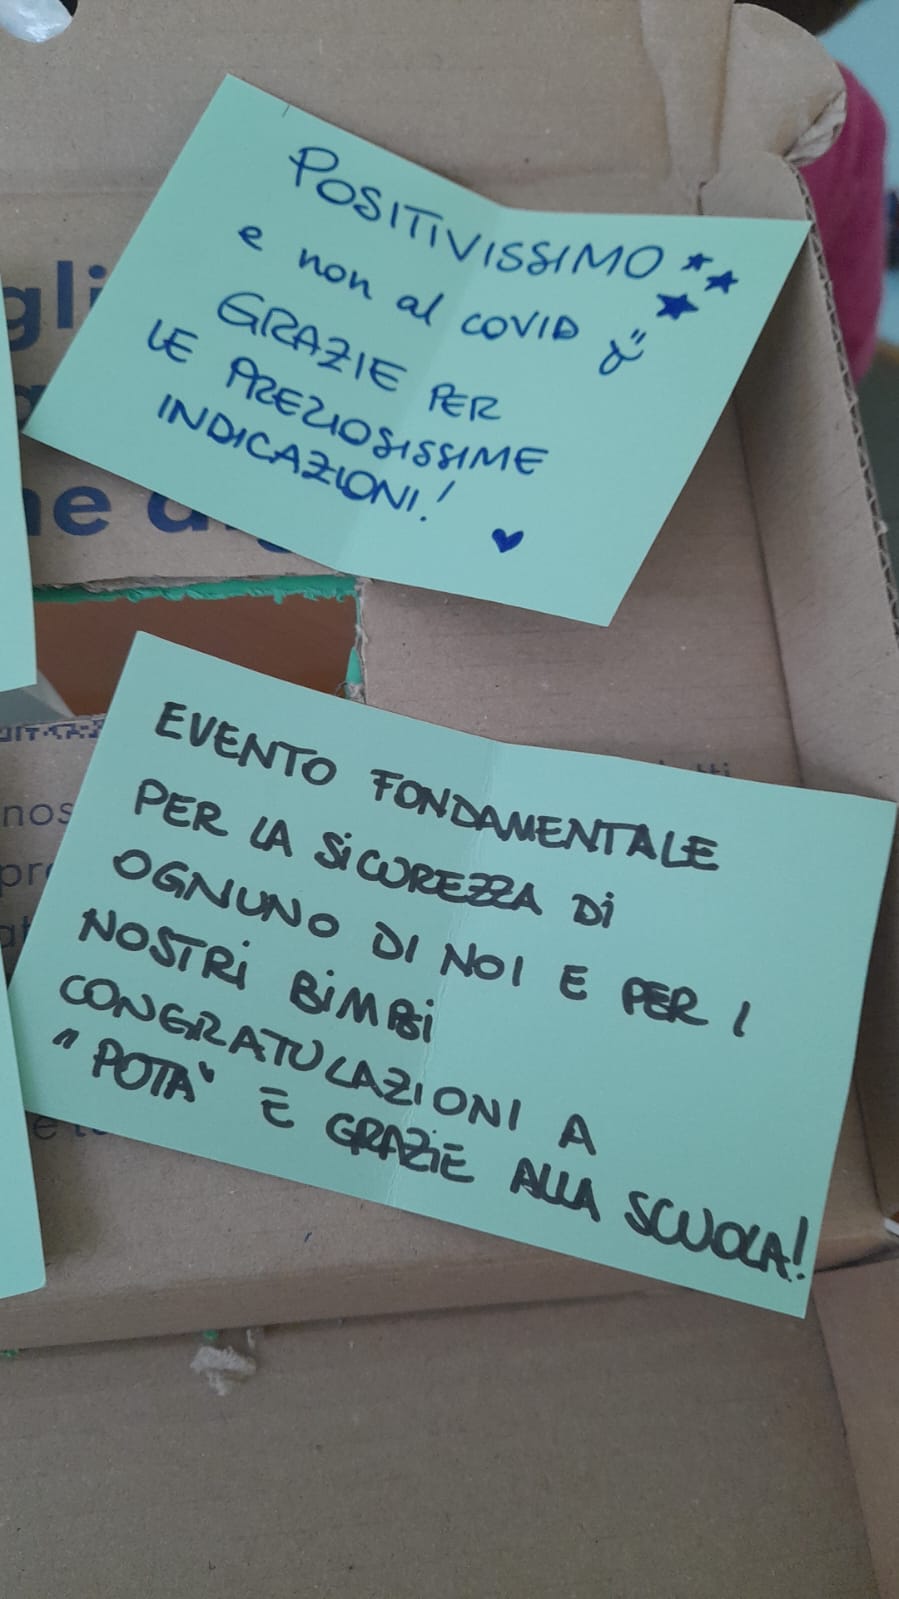 POSITIVISSIMO
e non al COVID
GRAZIE PER
LE PREZIOSISSIME
INDICAZIONI!
EVENTO FONDAMENTALE
PER LA SICUREZZA DI
OGNUNO DI NOI E PER I
NOSTRI BIMBI
CONGRATULAZIONI A
"POTA" E GRAZIE ALLA SCUOLA!
gli
ne d
nos
pro